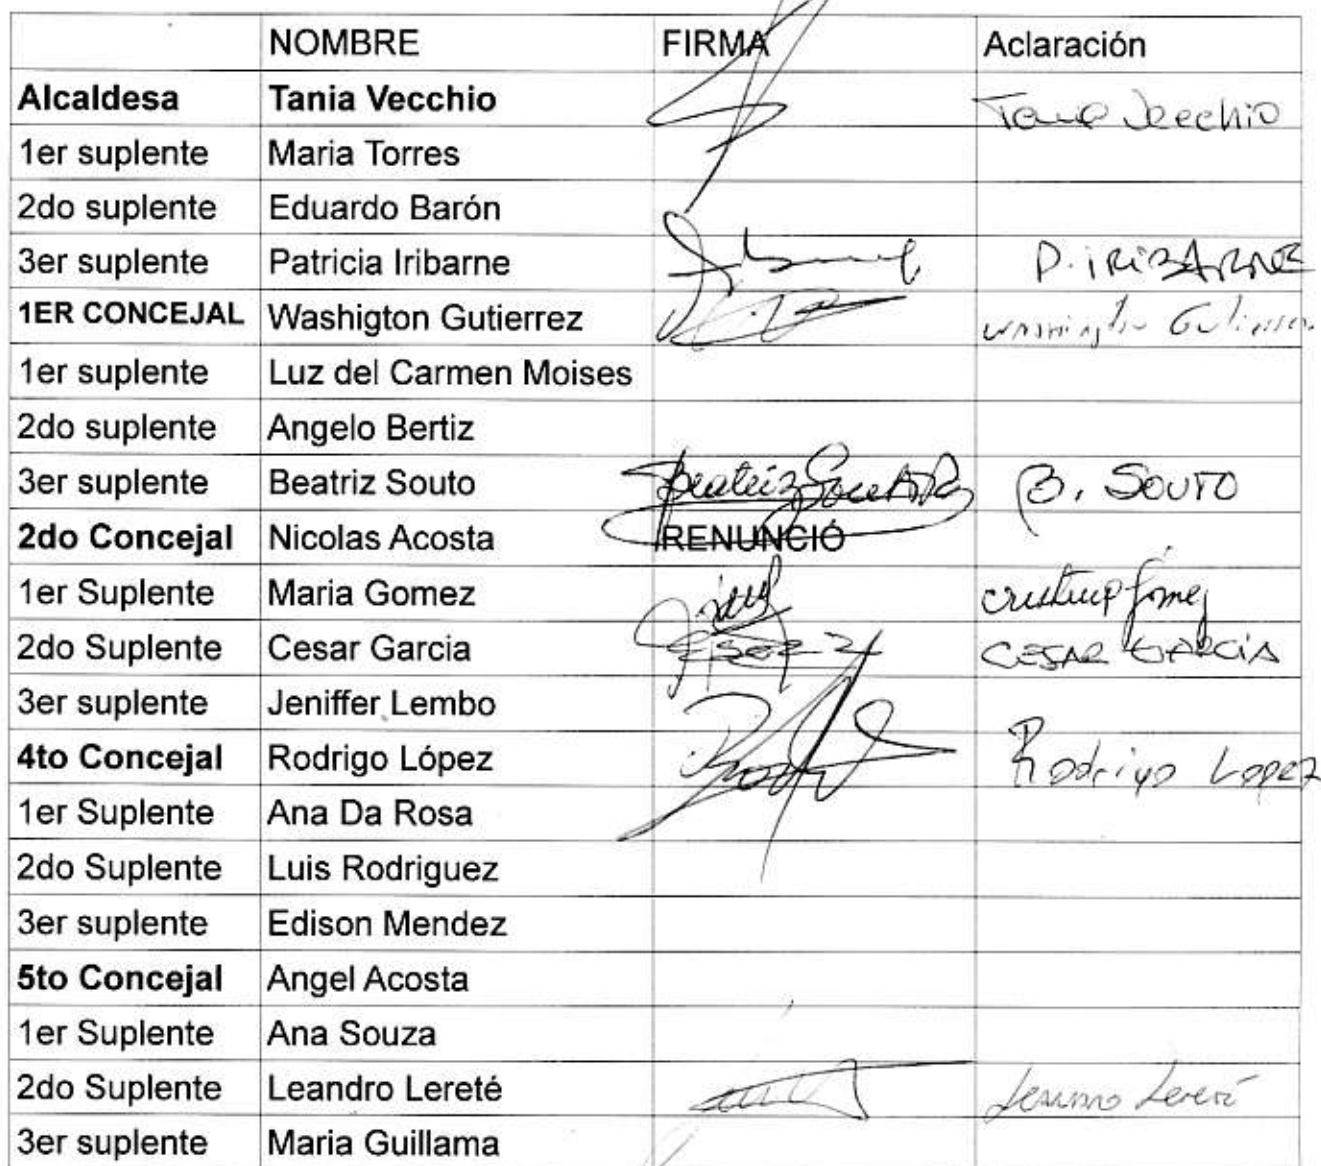 NOMBRE FIRMA Aclaración
Alcaldesa Tania Vecchio Tania Vecchio
1er suplente Maria Torres
2do suplente Eduardo Barón
3er suplente Patricia Iribarne P. IRIBARNE
1ER CONCEJAL Washigton Gutierrez Washington Gutierrez
1er suplente Luz del Carmen Moises
2do suplente Angelo Bertiz
3er suplente Beatriz Souto Beatriz B. SOUTO
2do Concejal Nicolas Acosta RENUNCIÓ
1er Suplente Maria Gomez cristina Gómez
2do Suplente Cesar Garcia CESAR GARCÍA
3er suplente Jeniffer Lembo
4to Concejal Rodrigo López Rodrigo Lopez
1er Suplente Ana Da Rosa
2do Suplente Luis Rodriguez
3er suplente Edison Mendez
5to Concejal Angel Acosta
1er Suplente Ana Souza
2do Suplente Leandro Lereté Leandro Lereté
3er suplente Maria Guillama